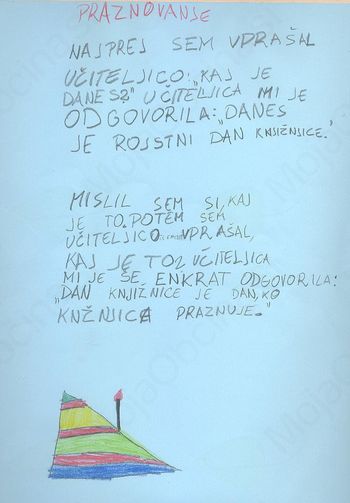 PRAZNOVANJE
NAJPREJ SEM VPRAŠAL
UČITELJICO: „KAJ JE
DANES?" UČITELJICA MI JE
ODGOVORILA: „DANES
JE ROJSTNI DAN KNJIŽNICE."
MISLIL SEM SI, KAJ
JE TO. POTEM SEM
UČITELJICO VPRAŠAL,
KAJ JE TO? UČITELJICA
MI JE ŠE ENKRAT ODGOVORILA:
„DAN KNJIŽNICE JE DAN, KO
KNŽNICA PRAZNUJE."